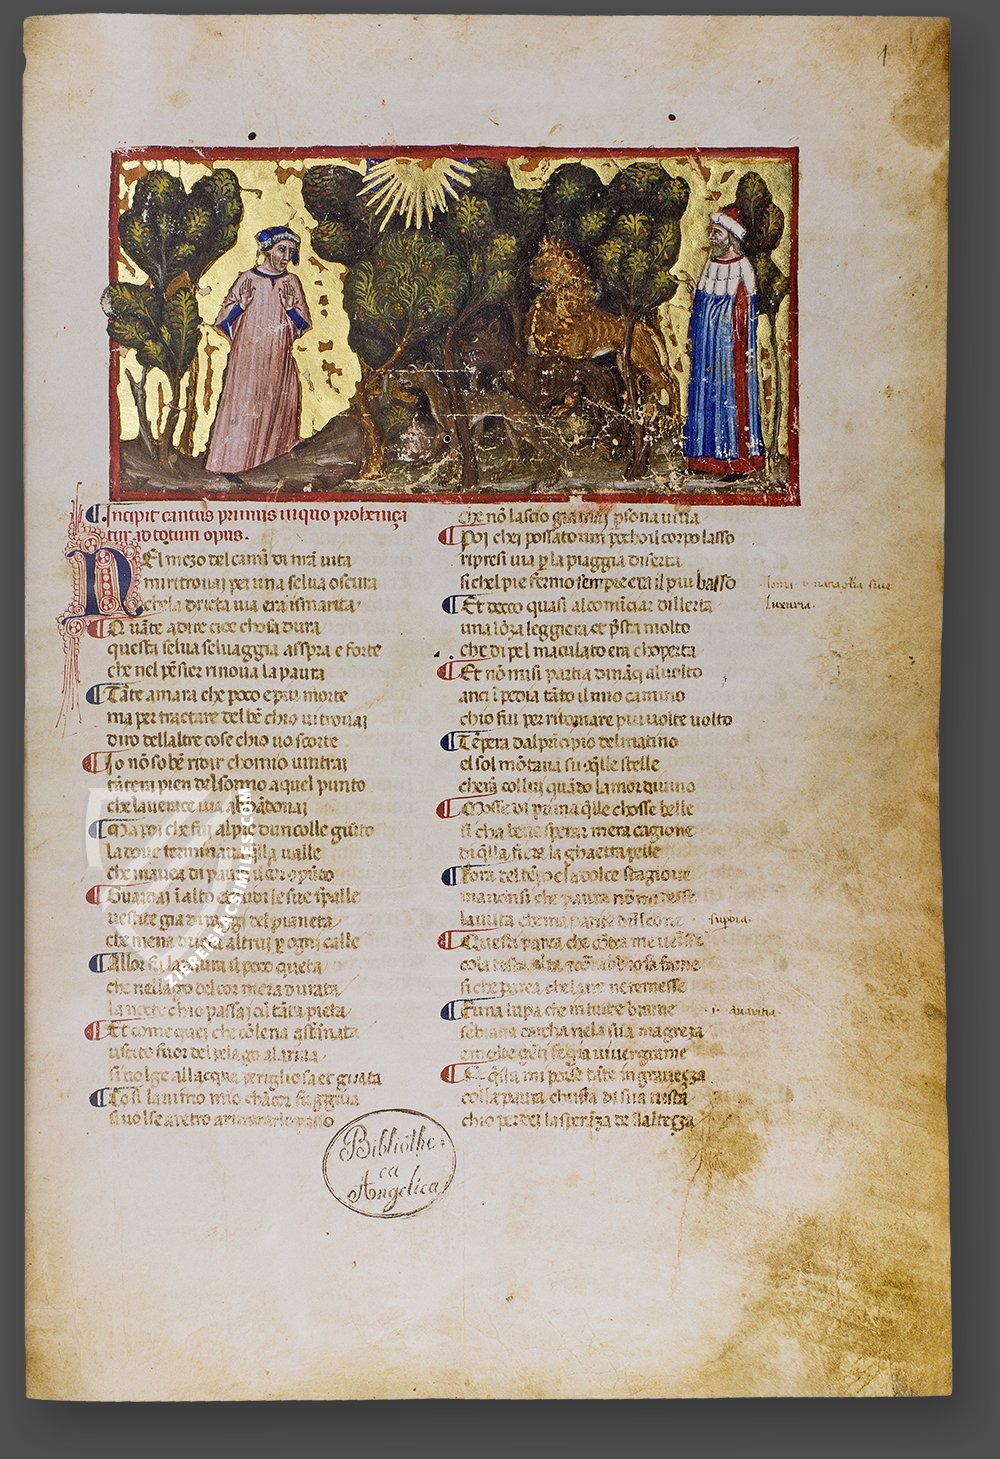 1
Incipit cantus primus in quo prohemiça
tur ad totum opus.
Nel mezo del camĩ di nr̃a vita
mi ritrovai per una selva oscura
che la dricta via era ismarita
Quãte a dire cioe chosa dura
questa selva selvaggia asspra e forte
che nel pẽsier rinova la paura
Tãte amara che poco e piu morte
ma per tractare del bẽ chio vi trovai
diro dellaltre cose chio vo scorte
Io nõ so bẽ ridir chomio vintrai
tãtera pien del sonno a quel punto
che la verace via abãdonai
Ma poi che fui al pie dun colle giũto
la dove terminava q̃lla valle
che mavea di paura il cor
Guardai ĩ alto et vidi le sue spalle
vestite gia di raggi del pianeta
che mena dricti altrui p ogni calle
Allor fu la paura ũ poco queta
che nel lago del cor mera durata
la nocte chio passai cũ tãta pieta
Et come quei che cõ lena affãnata
uscito fuor del pelago a la riva
si volge allacqua perigliosa et guata
Cosi lanimo mio chãcor fuggiva
si volse a retro a rimirar lo passo
che nõ lascio gia mai psona viva
Poi chei possato um pocho il corpo lasso
ripresi via p la piaggia diserta
si chel pie fermo sempre era il piu basso
Et ecco quasi al comĩciar dellerta
una lõza leggiera et p̃sta molto
che di pel maculato era choperta
Et nõ misi partia dinãçi al volto
anci ĩpedia tãto il mio camino
chio fui per ritornare piu volte volto
Tẽpera dal prĩcipio del matino
el sol mõtava su cõ q̃lle stelle
cherã col lui quãdo lamor divino
Mosse di prima q̃lle chosse belle
si cha bene sperar mera cagione
di q̃lla fiera la ghaetta pelle
Lora del tẽpo e la dolce stagione
ma nonsi che paura nõ mi desse
la vista che mapparse dũ leone
Questi parea che cõtra me venisse
cola testa alta et cõ rabbiosa fame
si che parea che laere ne temesse
Et una lupa che di tucte brame
sebiava carcha nela sua magreza
e molte gẽti fe gia viver grame
Et q̃sta mi porse tãto ingraveçça
colla paura chuscia di sua vista
chio perdei la sperãza de llalteçça
luxuria.
supbia.
avaritia.
Bibliothe=
ca
Angelica
ZIEREISFACSIMILES.COM